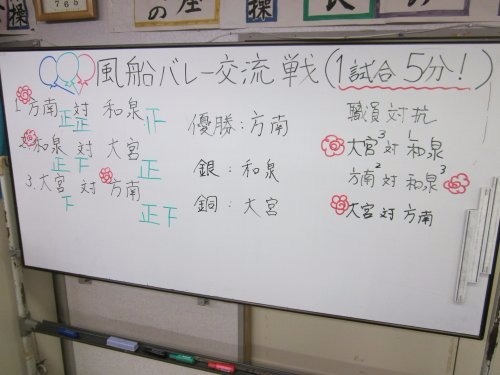 操
76b
の屋
操
風船バレー交流戦(1試合5分!)
1.方南 対 和泉
正正 正
2.和泉 対 大宮
正下 正
3.大宮 対 方南
下 正下
優勝:方南
銀:和泉
銅:大宮
職員対抗
大宮3対1和泉
方南2対和泉3
大宮対方南